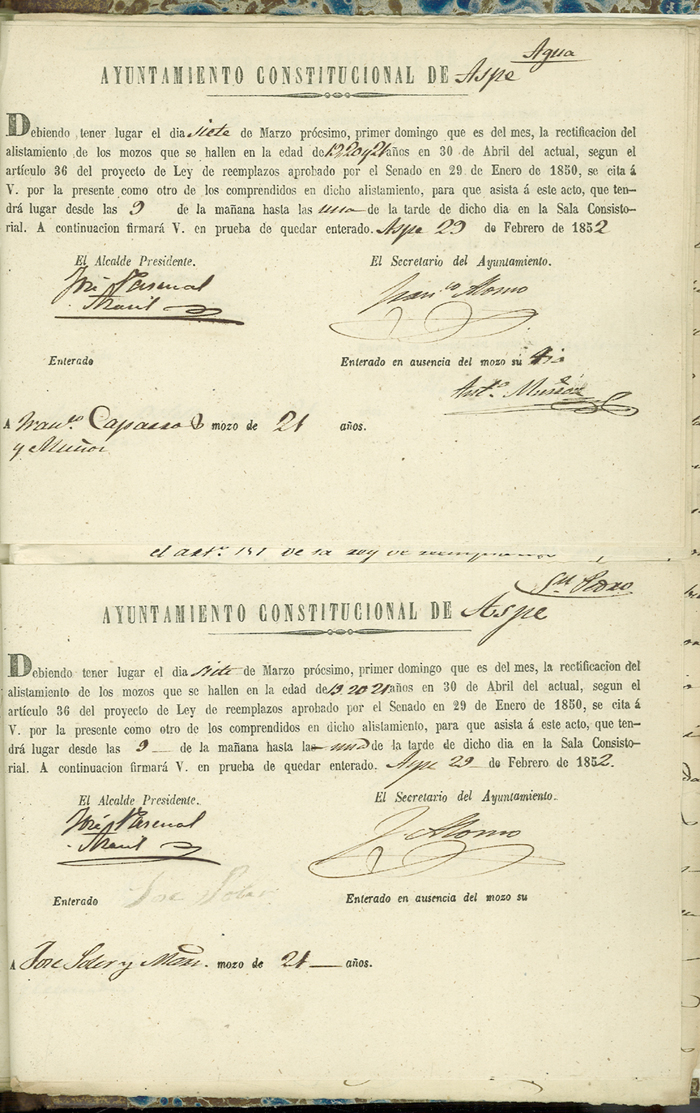 Agua
AYUNTAMIENTO CONSTITUCIONAL DE Aspe
Debiendo tener lugar el dia siete de Marzo prócsimo, primer domingo que es del mes, la rectificacion del
alistamiento de los mozos que se hallen en la edad de 19 20 y 21 años en 30 de Abril del actual, segun el
artículo 36 del proyecto de Ley de reemplazos aprobado por el Senado en 29 de Enero de 1850, se cita á
V. por la presente como otro de los comprendidos en dicho alistamiento, para que asista á este acto, que ten-
drá lugar desde las 9 de la mañana hasta las una de la tarde de dicho dia en la Sala Consisto-
rial. A continuacion firmará V. en prueba de quedar enterado. Aspe 29 de Febrero de 1852
El Alcalde Presidente. El Secretario del Ayuntamiento.
José Pascual Franco Alonso
Enterado Enterado en ausencia del mozo su tio
Anto. Muñoz
A Franco. mozo de 21 años.
y Muñoz
Sn Pedro
AYUNTAMIENTO CONSTITUCIONAL DE Aspe
Debiendo tener lugar el dia siete de Marzo prócsimo, primer domingo que es del mes, la rectificacion del
alistamiento de los mozos que se hallen en la edad de 19 20 21 años en 30 de Abril del actual, segun el
artículo 36 del proyecto de Ley de reemplazos aprobado por el Senado en 29 de Enero de 1850, se cita á
V. por la presente como otro de los comprendidos en dicho alistamiento, para que asista á este acto, que ten-
drá lugar desde las 9 de la mañana hasta las una de la tarde de dicho dia en la Sala Consisto-
rial. A continuacion firmará V. en prueba de quedar enterado. Aspe 29 de Febrero de 1852.
El Alcalde Presidente. El Secretario del Ayuntamiento.
José Pascual F Alonso
Enterado Jose Soler Enterado en ausencia del mozo su
A Jose Soler y mozo de 21 años.